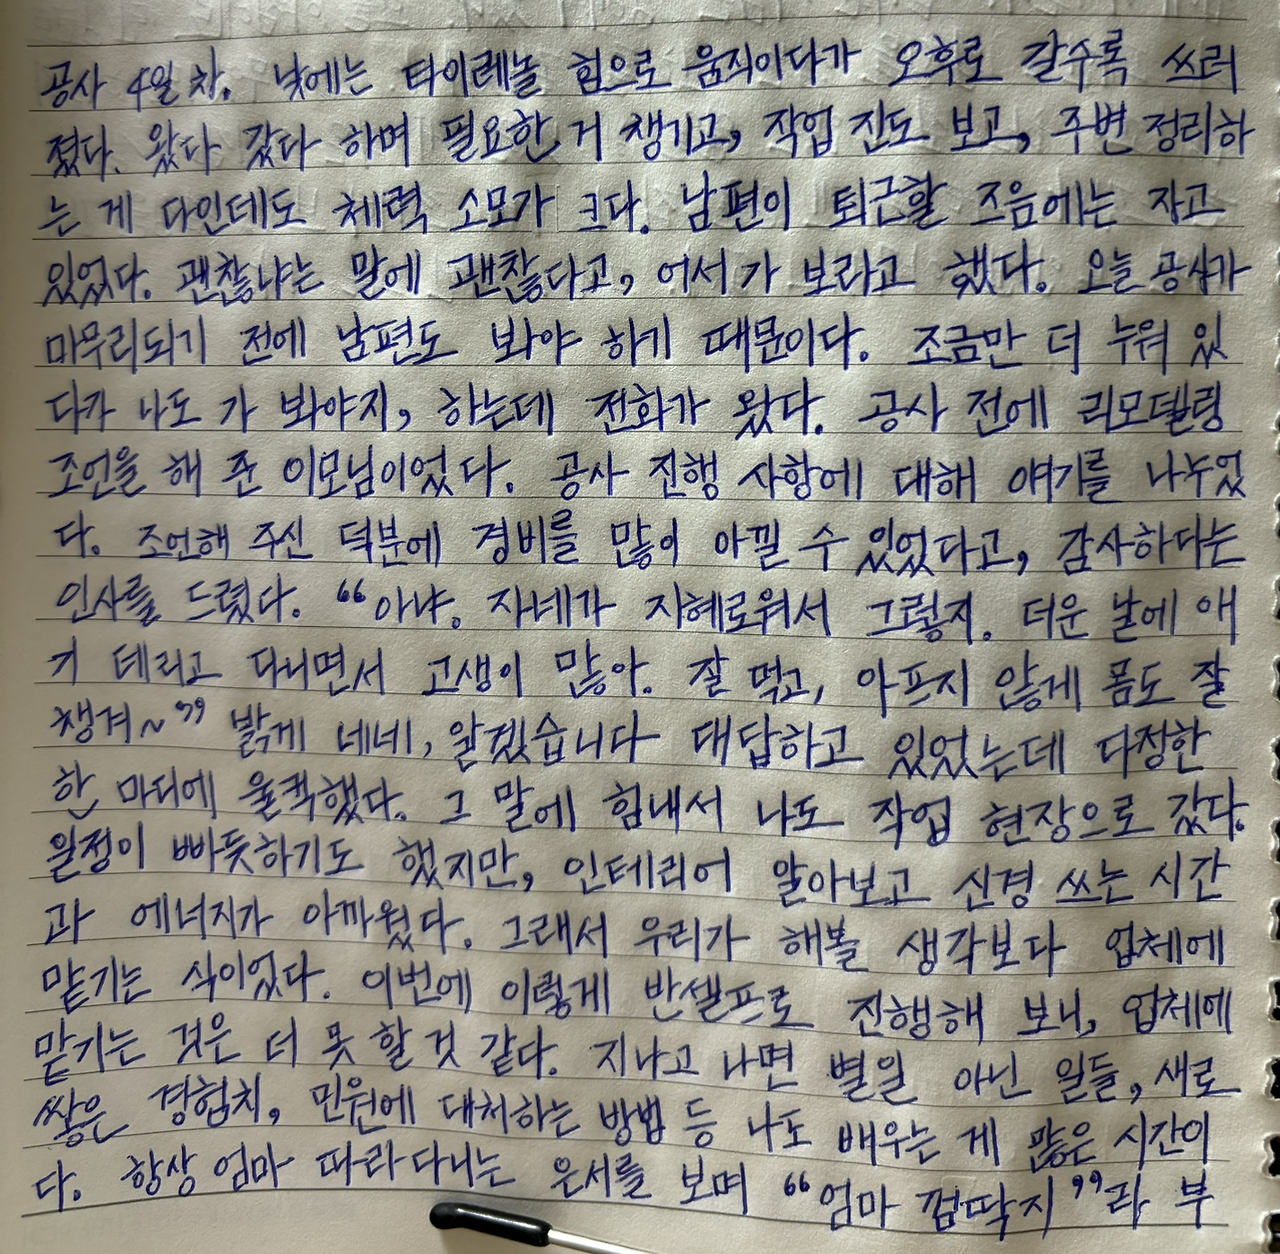 공사 4일 차. 낮에는 타이레놀 힘으로 움직이다가 오후로 갈수록 쓰러
졌다. 왔다 갔다 하며 필요한 거 챙기고, 작업 진도 보고, 주변 정리하
는 게 다인데도 체력 소모가 크다. 남편이 퇴근할 즈음에는 자고
있었다. 괜찮냐는 말에 괜찮다고, 어서 가 보라고 했다. 오늘 공사가
마무리되기 전에 남편도 봐야 하기 때문이다. 조금만 더 누워 있
다가 나도 가 봐야지, 하는데 전화가 왔다. 공사 전에 리모델링
조언을 해 준 이모님이었다. 공사 진행 사항에 대해 얘기를 나누었
다. 조언해 주신 덕분에 경비를 많이 아낄 수 있었다고, 감사하다는
인사를 드렸다. “아냐. 자네가 지혜로워서 그렇지. 더운 날에 애
기 데리고 다니면서 고생이 많아. 잘 먹고, 아프지 않게 몸도 잘
챙겨~” 밝게 네네, 알겠습니다 대답하고 있었는데 다정한
한 마디에 울컥했다. 그 말에 힘내서 나도 작업 현장으로 갔다.
일정이 빠듯하기도 했지만, 인테리어 알아보고 신경 쓰는 시간
과 에너지가 아까웠다. 그래서 우리가 해볼 생각보다 업체에
맡기는 식이었다. 이번에 이렇게 반셀프로 진행해 보니, 업체에
맡기는 것은 더 못 할 것 같다. 지나고 나면 별일 아닌 일들, 새로
쌓은 경험치, 민원에 대처하는 방법 등 나도 배우는 게 많은 시간이
다. 항상 엄마 따라다니는 은서를 보며 “엄마 껌딱지”라 부